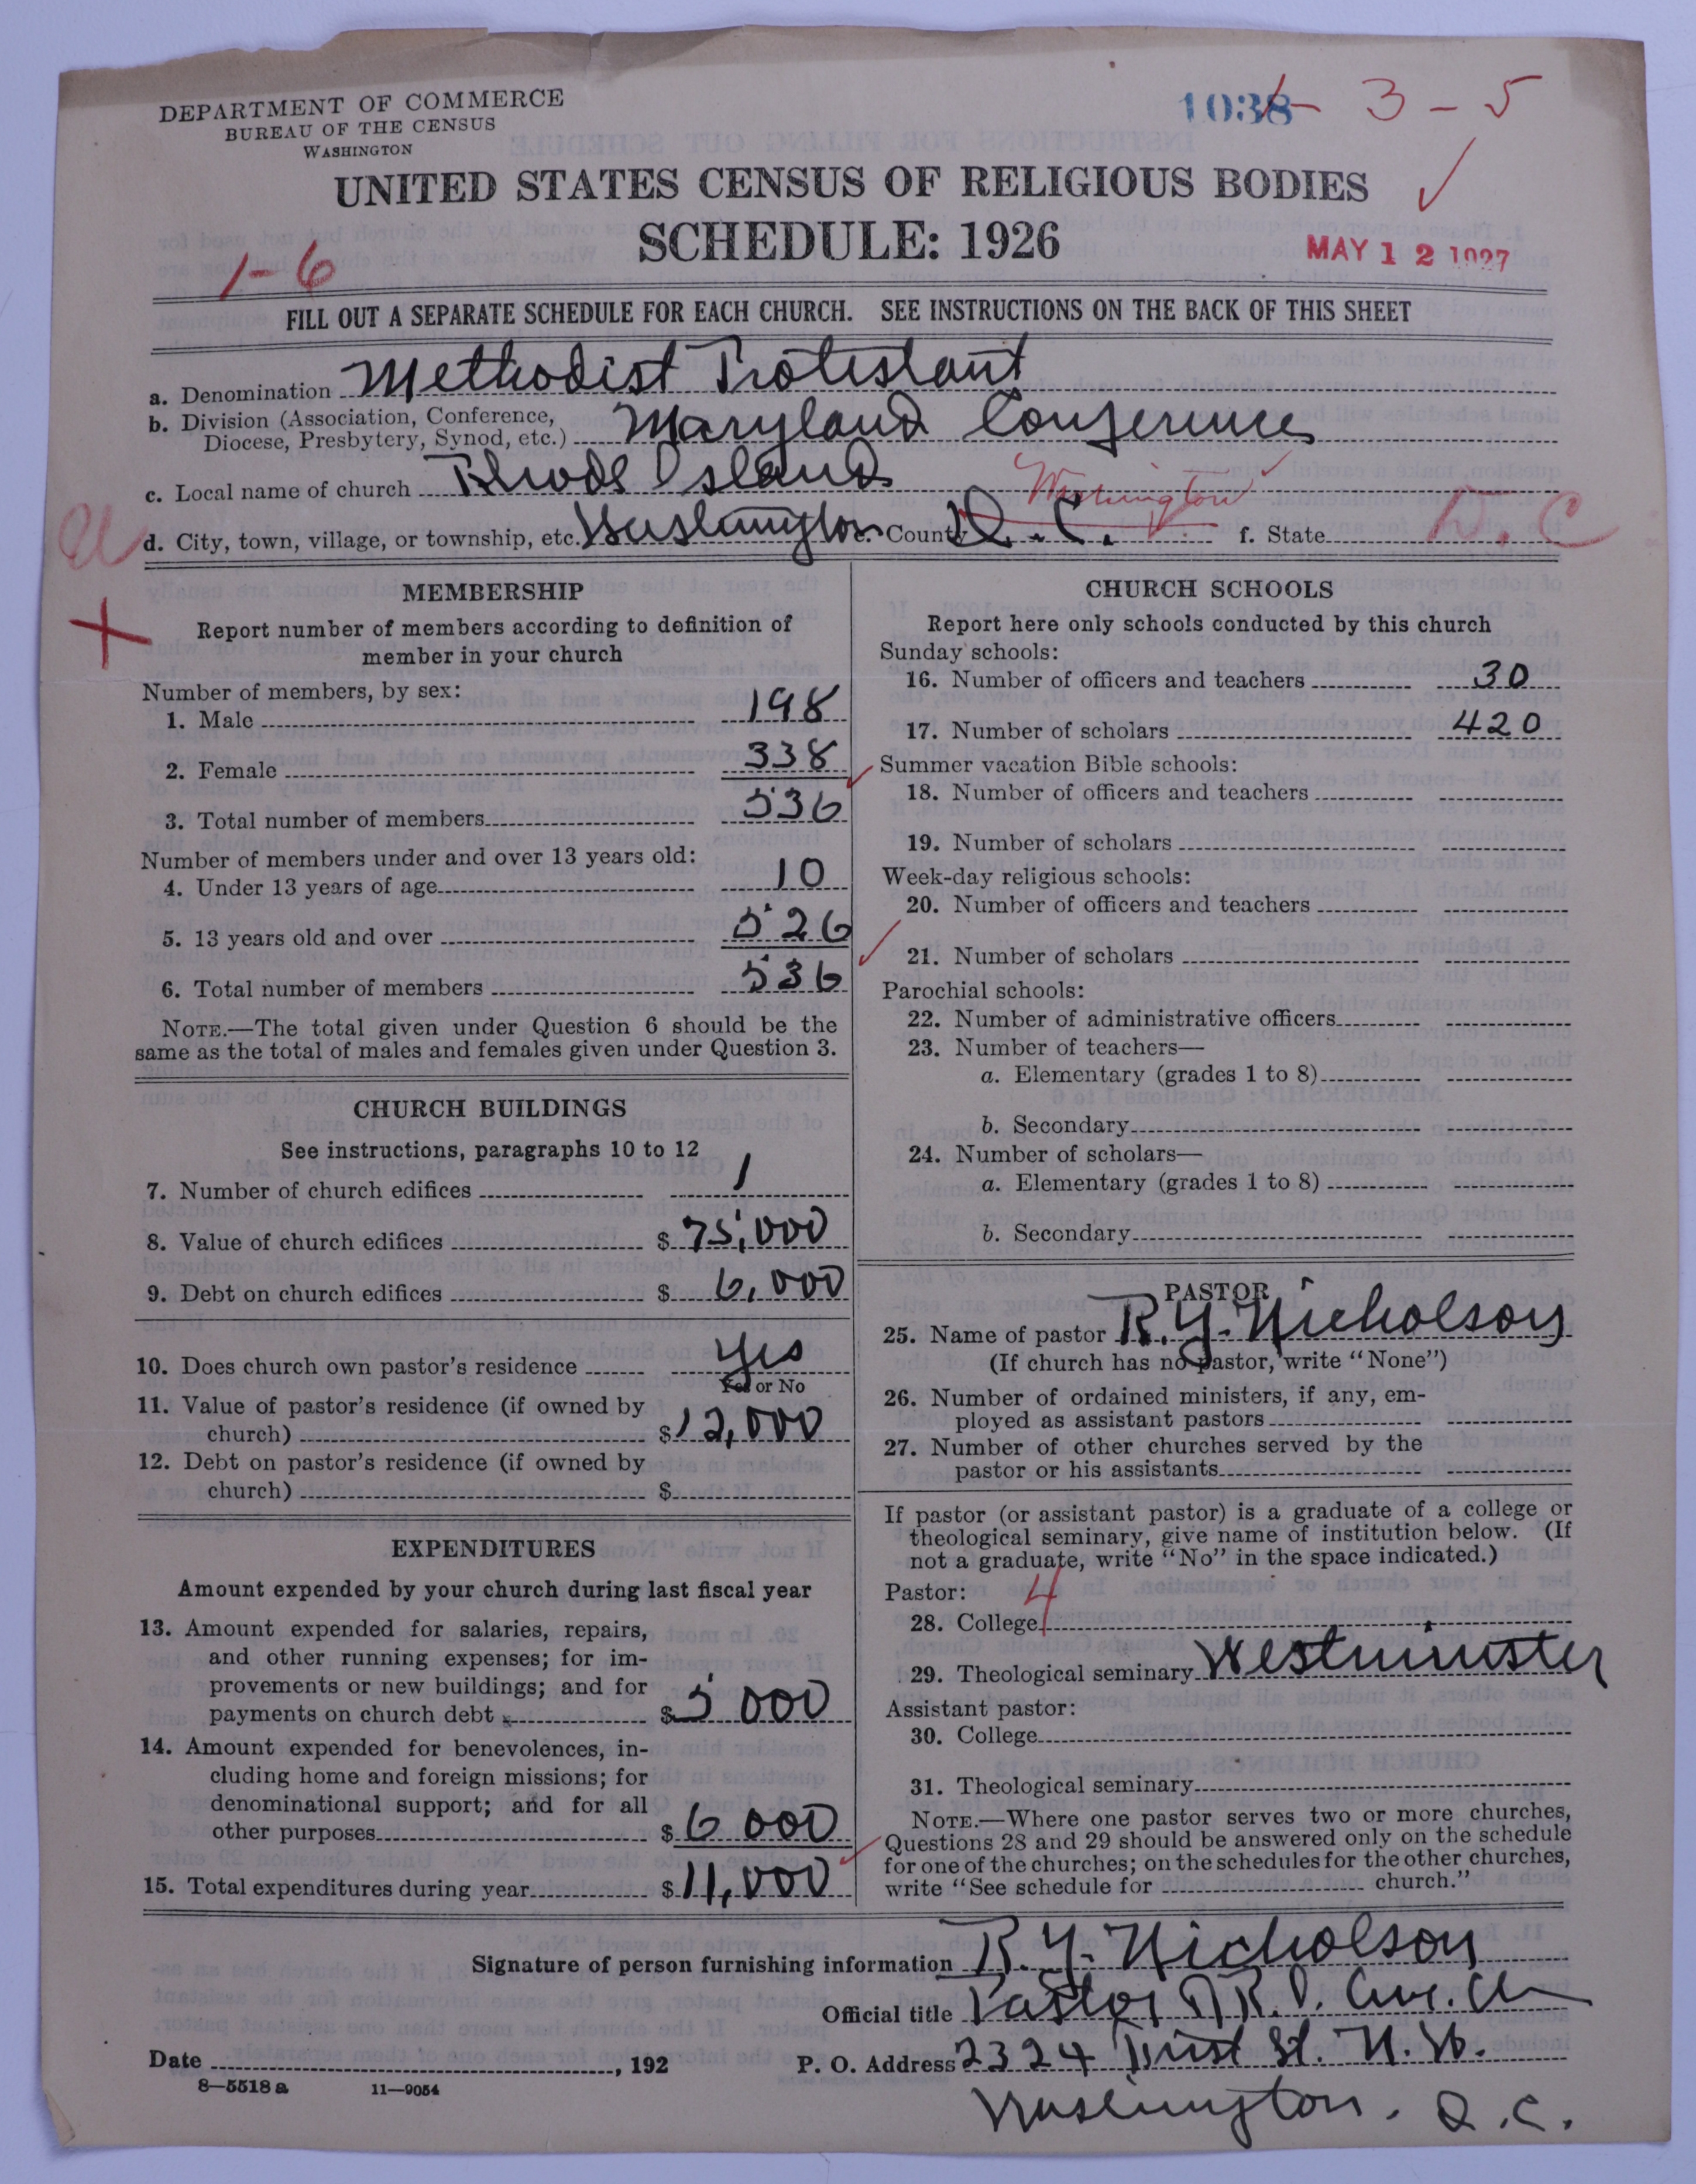 DEPARTMENT OF COMMERCE
BUREAU OF THE CENSUS
WASHINGTON
1038 - 3 - 5
UNITED STATES CENSUS OF RELIGIOUS BODIES
SCHEDULE: 1926
MAY 12 1927
1-6
FILL OUT A SEPARATE SCHEDULE FOR EACH CHURCH. SEE INSTRUCTIONS ON THE BACK OF THIS SHEET
a. Denomination Methodist Protestant
b. Division (Association, Conference,
Diocese, Presbytery, Synod, etc.) Maryland Conference
c. Local name of church Rhode Island
Washington
d. City, town, village, or township, etc. Washington e. County D. C. f. State D. C
MEMBERSHIP
Report number of members according to definition of
member in your church
Number of members, by sex:
1. Male 198
2. Female 338
3. Total number of members 536
Number of members under and over 13 years old:
4. Under 13 years of age 10
5. 13 years old and over 526
6. Total number of members 536
NOTE.—The total given under Question 6 should be the
same as the total of males and females given under Question 3.
CHURCH BUILDINGS
See instructions, paragraphs 10 to 12
7. Number of church edifices 1
8. Value of church edifices $ 75,000
9. Debt on church edifices $ 6,000
10. Does church own pastor's residence Yes
Yes or No
11. Value of pastor's residence (if owned by
church) $ 12,000
12. Debt on pastor's residence (if owned by
church) $
EXPENDITURES
Amount expended by your church during last fiscal year
13. Amount expended for salaries, repairs,
and other running expenses; for im-
provements or new buildings; and for
payments on church debt $ 5000
14. Amount expended for benevolences, in-
cluding home and foreign missions; for
denominational support; and for all
other purposes $ 6000
15. Total expenditures during year $ 11,000
CHURCH SCHOOLS
Report here only schools conducted by this church
Sunday schools:
16. Number of officers and teachers 30
17. Number of scholars 420
Summer vacation Bible schools:
18. Number of officers and teachers
19. Number of scholars
Week-day religious schools:
20. Number of officers and teachers
21. Number of scholars
Parochial schools:
22. Number of administrative officers
23. Number of teachers—
a. Elementary (grades 1 to 8)
b. Secondary
24. Number of scholars—
a. Elementary (grades 1 to 8)
b. Secondary
PASTOR
25. Name of pastor R. Y. Nicholson
(If church has no pastor, write "None")
26. Number of ordained ministers, if any, em-
ployed as assistant pastors
27. Number of other churches served by the
pastor or his assistants
If pastor (or assistant pastor) is a graduate of a college or
theological seminary, give name of institution below. (If
not a graduate, write "No" in the space indicated.)
Pastor: 4
28. College
29. Theological seminary Westminster
Assistant pastor:
30. College
31. Theological seminary
NOTE.—Where one pastor serves two or more churches,
Questions 28 and 29 should be answered only on the schedule
for one of the churches; on the schedules for the other churches,
write "See schedule for church."
Signature of person furnishing information R. Y. Nicholson
Official title Pastor R. I. Ave. Ch
Date , 192
P. O. Address 2324 First St. N. W.
Washington. D. C.
8—5518 a 11—9054